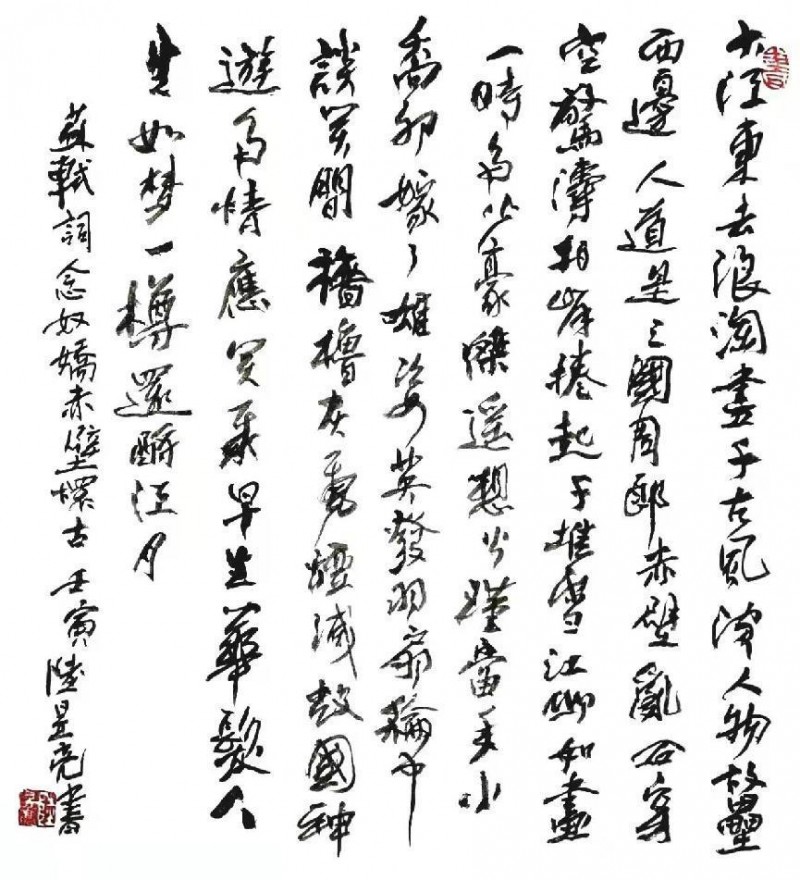 大江東去浪淘盡千古風流人物故壘
西邊人道是三國周郎赤壁亂石穿
空驚濤拍岸捲起千堆雪江山如畫
一時多少豪傑遥想公瑾當年小
喬初嫁了雄姿英發羽扇綸巾
談笑間檣櫓灰飛煙滅故國神
遊多情應笑我早生華髮人
生如梦一樽還酹江月
蘇軾詞念奴嬌赤壁懷古 壬寅 陸亮書